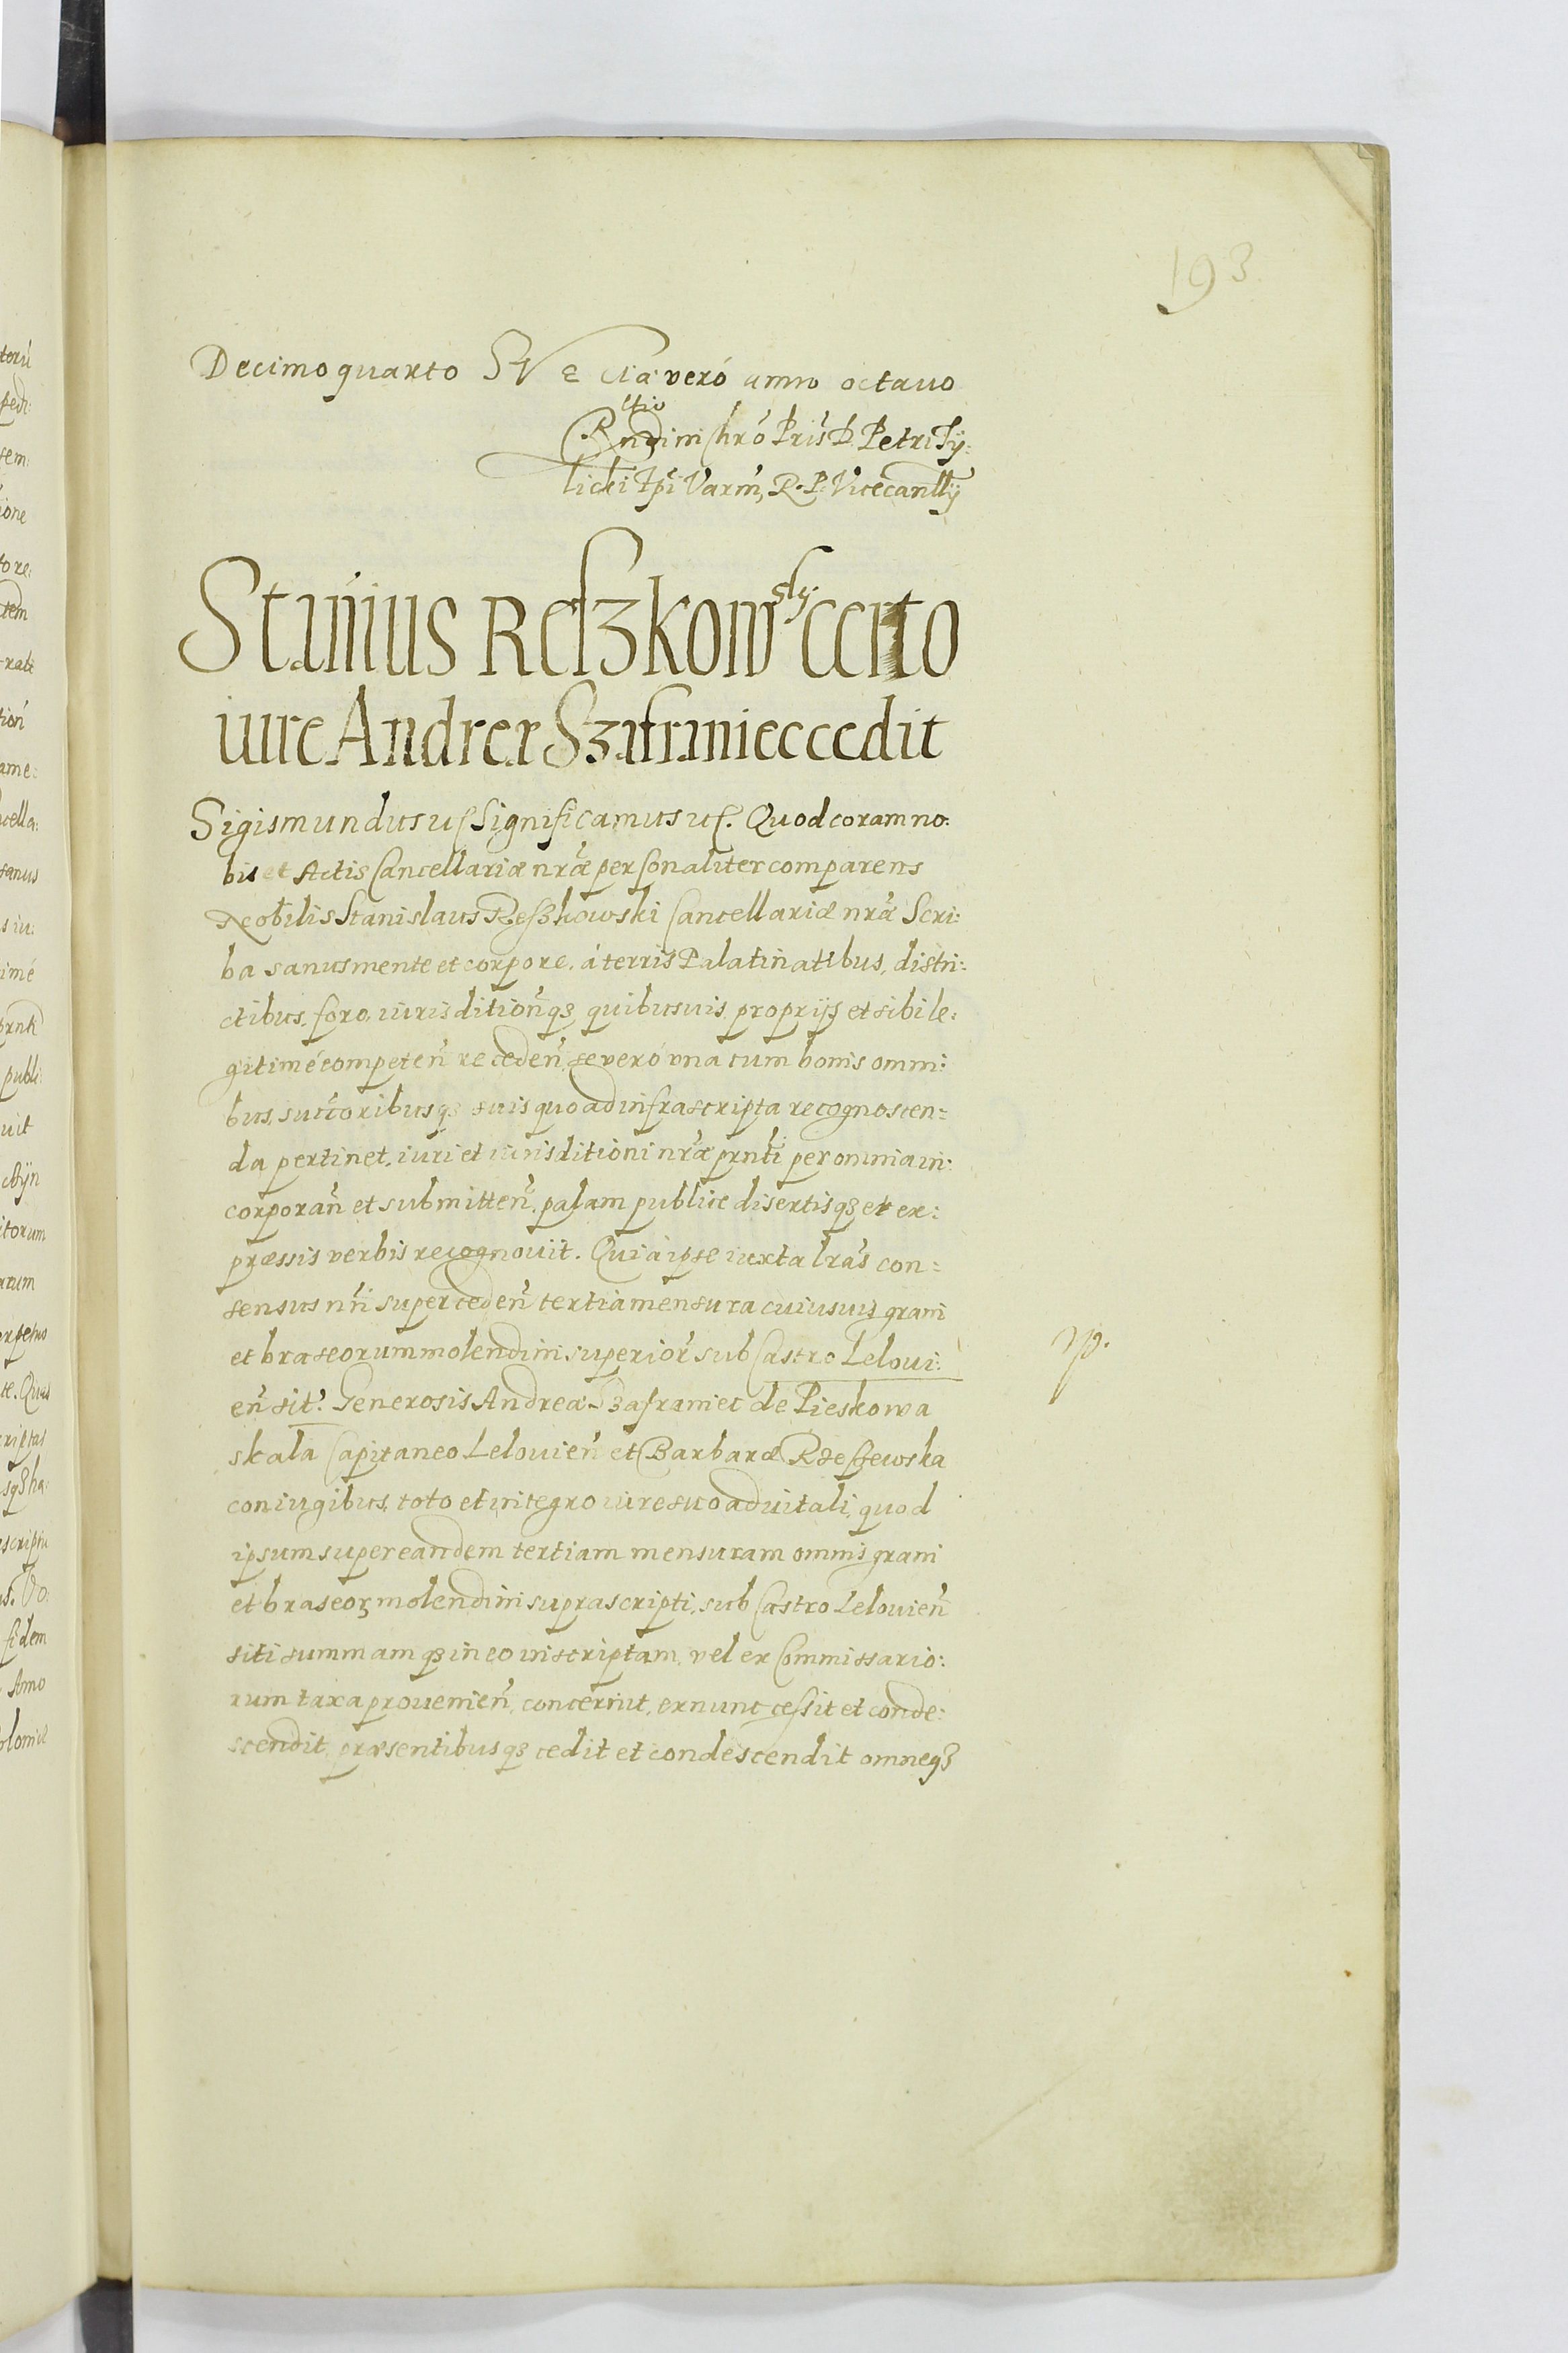 193
Decimoquarto Sve ciæ veró anno octavo
Rltio
Rndi in Chró Pris D. Petri Ty:
licki Epi Varm, R. P. Vicecanllÿ
Stánius Reszkowsky certo
iure Andreæ Szafraniec cedit
Sigismundus uſ Significamus uſ. Quod coram no:
bis et Actis Cancellariæ nræ personaliter comparens
Nobilis Stanislaus Reszkowski Cancellariæ nræ Scri:
ba sanus mente et corpore, á terris Palatinatibus, distri:
ctibus, foro, iurisdition̄qz quibusuis proprijs et sibi le:
gitimé competen̄ receden̄, se veró vna cum bonis omni:
bus, succ̄oribusqz suis quoad infrascripta recognoscen=
da pertinet, iuri et iurisditioni nræ prnti per omnia in:
corporan̄ et submitten̄, palam publice disertisqz et ex:
præssis verbis recognouit. Quia ipse iuxta lras con=
sensus nri super ceden̄ tertia mensura cuiusuis grani
et braseorum molendini superior̄ sub Castro Leloui:
en̄ sit? Generosis Andreæ Szafraniec de Pieskowa
skala Capitaneo Lelouien̄ et Barbaræ Rzeszewska
coniugibus, toto et integro iure suo aduitali, quod
ipsum super eandem tertiam mensuram omnis grani
et braseoꝝ molendini suprascripti, sub Castro Lelouien̄
siti summamqz in eo inscriptam, vel ex Commissario:
rum taxa prouenien̄, concernit, ex nunc cessit et conde:
scendit, præsentibusqz cedit et condescendit omneqz